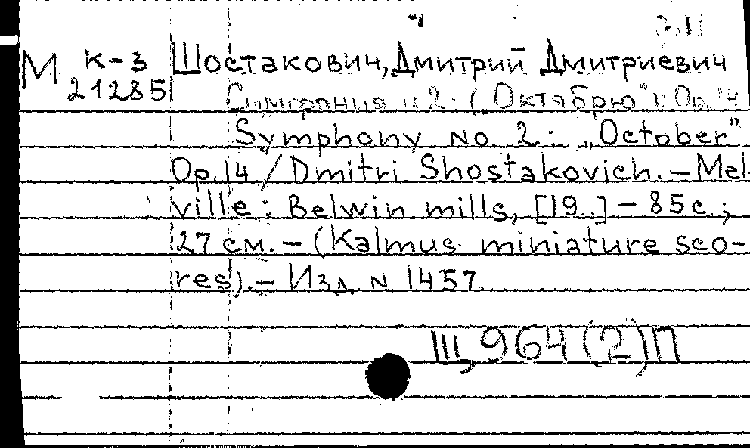 М К-3 Шостакович, Дмитрий Дмитриевич
21285 Симфония N 2: („Октябрю“) Op. 14
Symphony No 2: „October“
Op. 14 / Dmitri Shostakovich. – Mel-
ville: Belwin mills, [19..] – 85 с.;
27 см. – (Kalmus miniature sco-
res). – Изд. N 1457.
Щ964(2)П